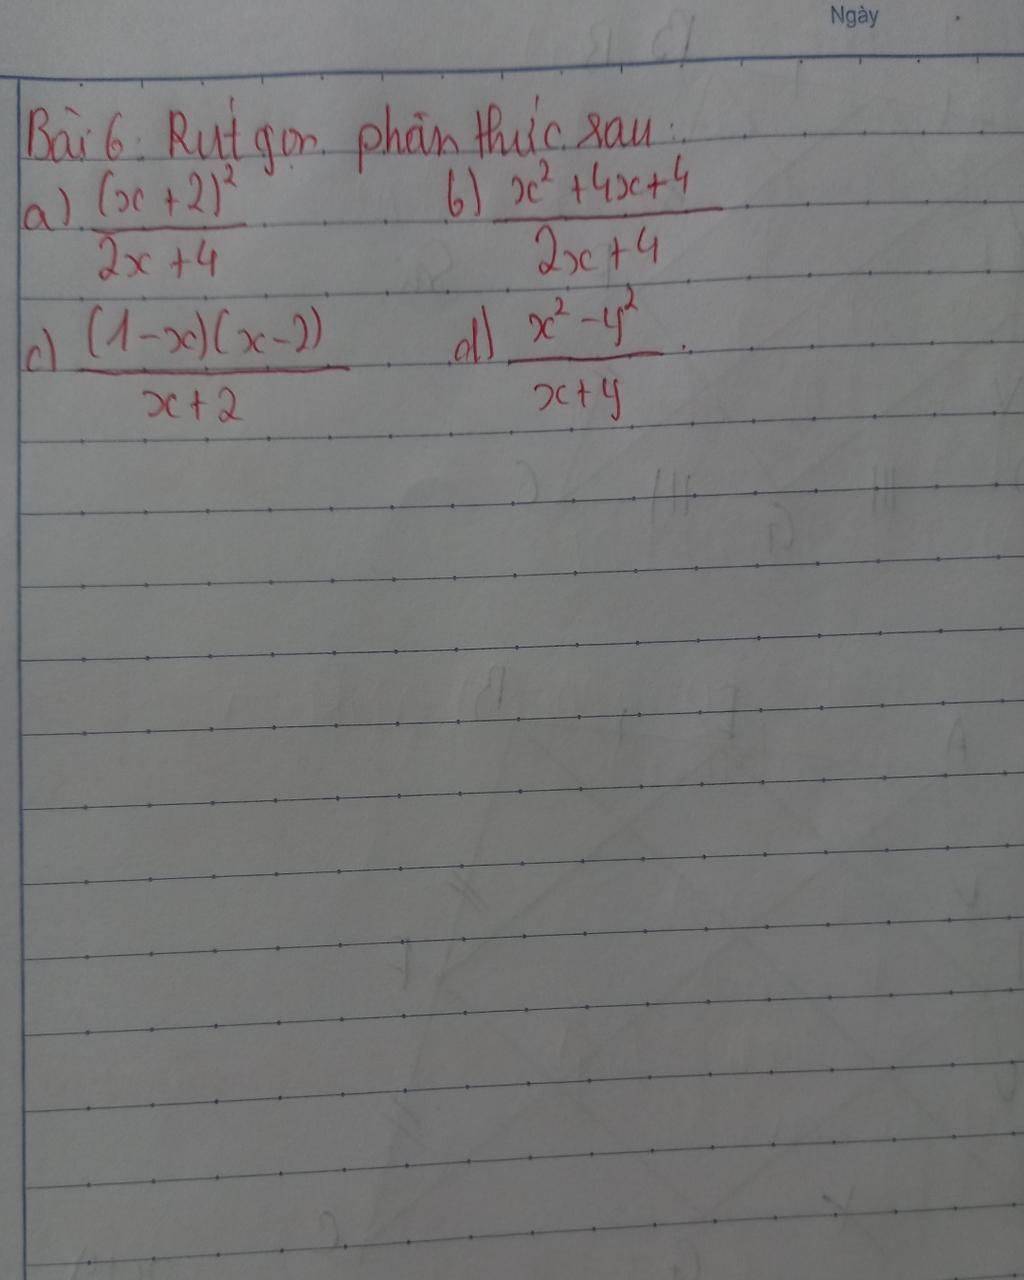 Ngày
Bài 6: Rút gọn phân thức sau:
a) (x+2)²/2x+4 b) x²+4x+4/2x+4
c) (1-x)(x-2)/x+2 d) x²-y²/x+y.